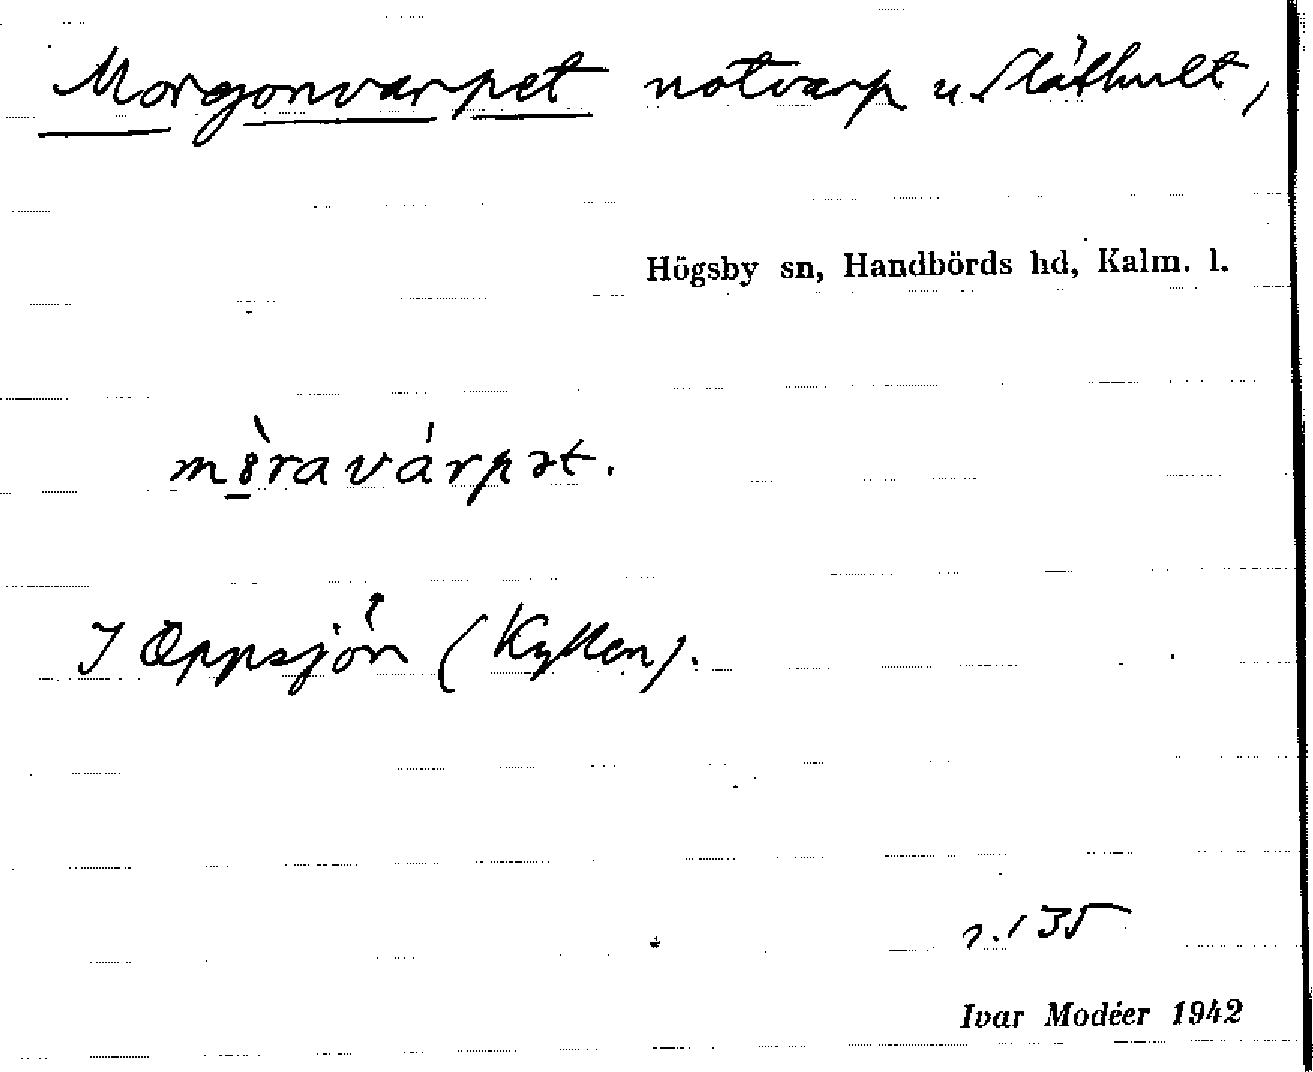 Morgonvarpet notvarp u. Slåthult,
Högsby sn, Handbörds hd, Kalm. l.
mȯ̀ravárpət.
I Öppsjön (Kyllen).
s. 135
Ivar Modéer 1942